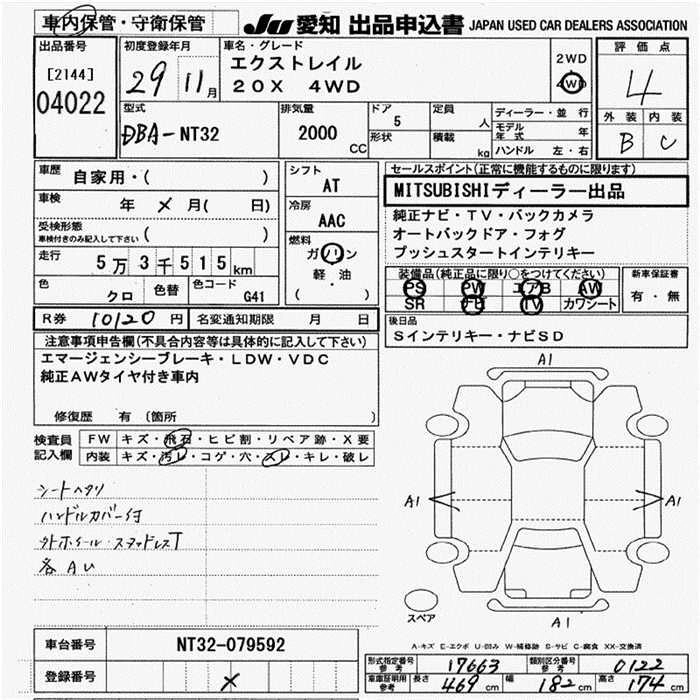 車内保管・守衛保管
JU 愛知 出品申込書 JAPAN USED CAR DEALERS ASSOCIATION
出品番号
[2144]
04022
初度登録年月
29 11月
車名・グレード
エクストレイル
20X 4WD
2WD
4WD
評価点
4
外装 内装
B C
型式
DBA-NT32
排気量
2000
CC
ドア
5
形状
定員
人
積載
kg
ディーラー・並行
モデル年式 年
ハンドル 左・右
車歴
自家用・( )
車検
年 × 月( 日)
受検形態
車検付きのみ記入して下さい ( )
走行
5万3千515km
色
クロ
色替
色コード
G41
シフト
AT
冷房
AAC
燃料
ガソリン
軽・油
( )
セールスポイント(正常に機能するものに限ります)
MITSUBISHIディーラー出品
純正ナビ・TV・バックカメラ
オートバックドア・フォグ
プッシュスタートインテリキー
装備品(純正品に限り○をつけてください)
PS PW エアB AW
SR ナビ TV カワシート
新車保証書
有・無
R券 10120円 名変通知期限 月 日
後日品
Sインテリキー・ナビSD
注意事項申告欄(不具合内容等は具体的に記入して下さい)
エマージェンシーブレーキ・LDW・VDC
純正AWタイヤ付き車内
修復歴 有 〔箇所 〕
検査員記入欄
FW キズ・飛石・ヒビ割・リペア跡・X要
内装 キズ・汚レ・コゲ・穴・スレ・キレ・破レ
シートヘタリ
ハンドルカバー付
外ホイール・スタッドレスT
各AU
A1
A1
A1
A1
スペア
A-キズ E-エクボ U-凹み W-補修跡 S-サビ C-腐食 XX-交換済
車台番号 NT32-079592
登録番号 ×
型式指定番号参考 17663 類別区分番号参考 0122
車庫証明用参考 長さ 469cm 幅 182cm 高さ 174cm